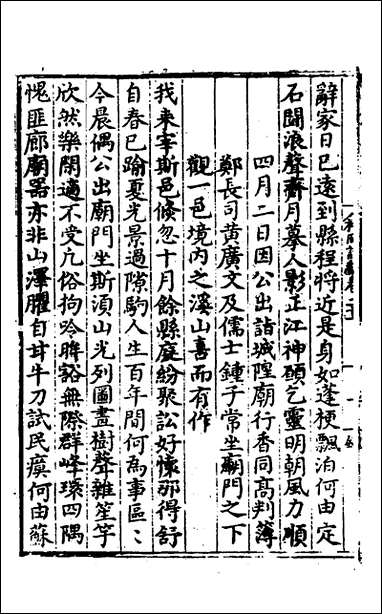 辭家日已遠到縣程將近是身如蓬梗飄泊何由定
石聞浪聲齋月墓人影正江神頤乞靈明朝風力順
四月二日因公出詣城隍廟行香同高判簿
鄭長司黃廣文及儒士鍾子常坐廟門之下
觀一邑境内之溪山喜而有作
我來宰斯邑倐忽十月餘縣庭紛聚訟好懐那得舒
自春已踰夏光景過隙駒人生百年間何為事區〻
今晨偶公出廟門坐斯湏山光列圖畫樹聲雜笙竽
欣然樂閑適不受几俗拘吟眸豁無際群峰環四隅
愧匪廊廟器亦非山澤臞自甘牛刀試民瘼何由蘇